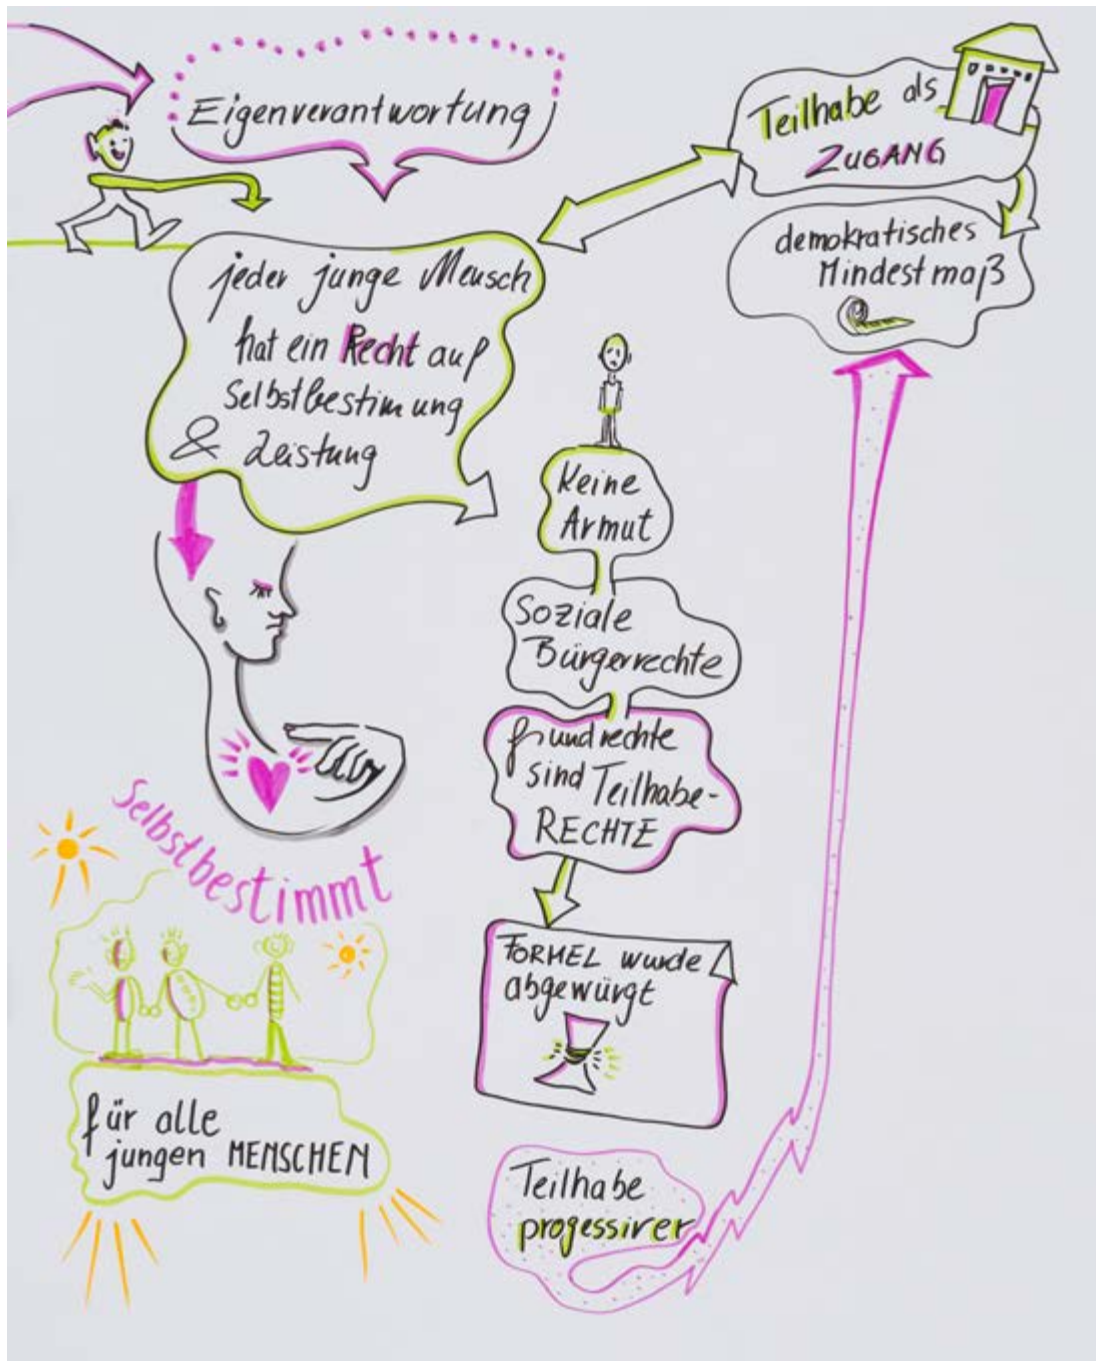 Eigenverantwortung
Teilhabe als
ZUGANG
demokratisches
Mindestmaß
jeder junge Mensch
hat ein Recht auf
Selbstbestimung
& Leistung
Keine
Armut
Soziale
Bürgerrechte
Grundrechte
sind Teilhabe-
RECHTE
Selbstbestimmt
FORMEL wurde
abgewürgt
für alle
jungen MENSCHEN
Teilhabe
progessiver